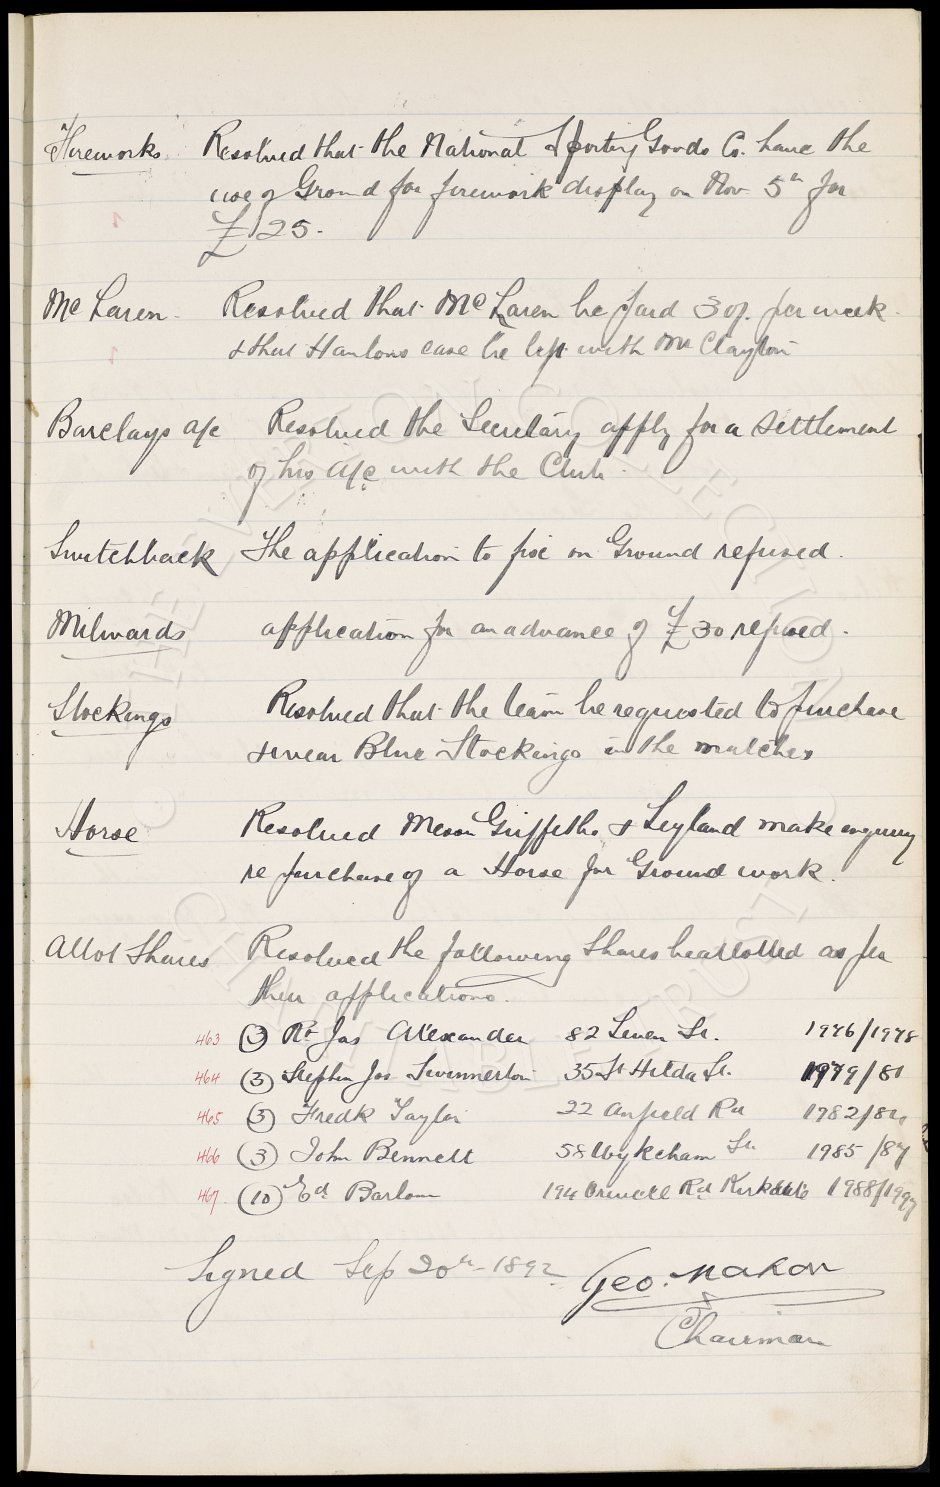 Fireworks Resolved that the National Sporting Goods Co. have the
use of Ground for firework display on Nov 5th for
£125.
McLaren. Resolved that McLaren be paid 30/. per week.
& that Hanlons case be left with Mr Clayton
Barclays a/c Resolved the Secretary apply for a settlement
of his a/c with the Club.
Switchback The application to fix on Ground refused.
Milwards application for an advance of £30 refused.
Stockings Resolved that the team be requested to purchase
& wear Blue Stockings in the matches
Horse Resolved Messrs Griffiths & Leyland make enquiry
re purchase of a Horse for Ground work.
Allot Shares Resolved the following Shares be allotted as per
their applications.
463 (3) Rt Jas Alexander 82 Leven St. 1976/1978
464 (3) Stephen Jas Swinnerton 35 St Hilda St. 1979/81
465 (3) Fredk Taylor 22 Anfield Rd 1982/84
466 (3) John Bennett 58 Wykeham St. 1985/87
467. (10) Ed Barlow 194 Orwell Rd Kirkdale 1988/1997
Signed Sep 20th - 1892 Geo. Mahon
Chairman
THE EVERTON COLLECTION
CHARITABLE TRUST